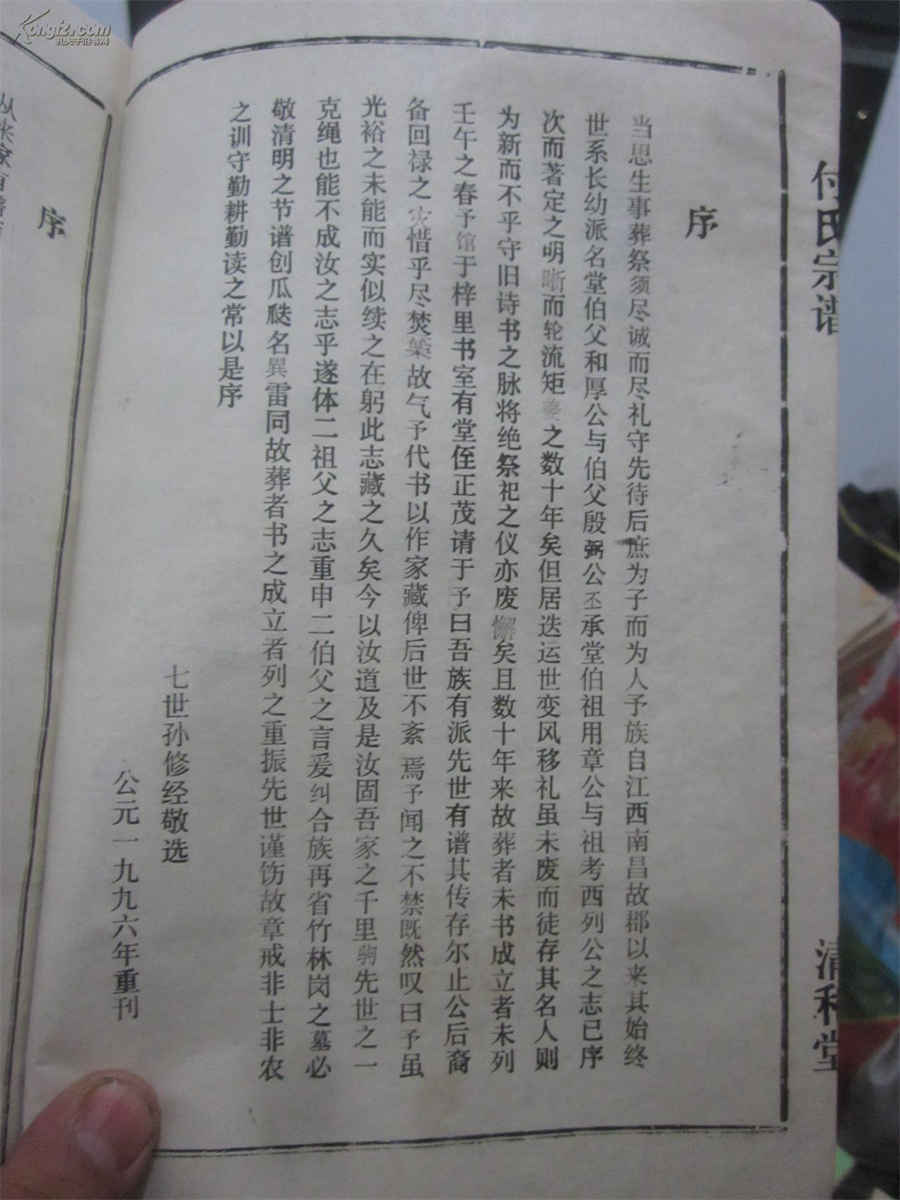 付氏宗谱
清和堂
序
当思生事葬祭须尽诚而尽礼守先待后庶为子而为人予族自江西南昌故郡以来其始终
世系长幼派名堂伯父和厚公与伯父殷弼公丕承堂伯祖用章公与祖考西列公之志已序
次而著定之明晰而轮流矩之数十年矣但居迭运世变风移礼虽未废而徒存其名人则
为新而不乎守旧诗书之脉将绝祭祀之仪亦废懈矣且数十年来故葬者未书成立者未列
壬午之春予馆于梓里书室有堂侄正茂请于予曰吾族有派先世有谱其传存尔止公后裔
备回禄之灾惜乎尽焚故气予代书以作家藏俾后世不紊焉予闻之不禁既然叹曰予虽
光裕之未能而实似续之在躬此志藏之久矣今以汝道及是汝固吾家之千里驹先世之一
克绳也能不成汝之志乎遂体二祖父之志重申二伯父之言爰纠合族再省竹林岗之墓必
敬清明之节谱创瓜瓞名異雷同故葬者书之成立者列之重振先世谨饬故章戒非士非农
之训守勤耕勤读之常以是序
七世孙修经敬选
公元一九九六年重刊
序
kongfz.com
孔夫子旧书网